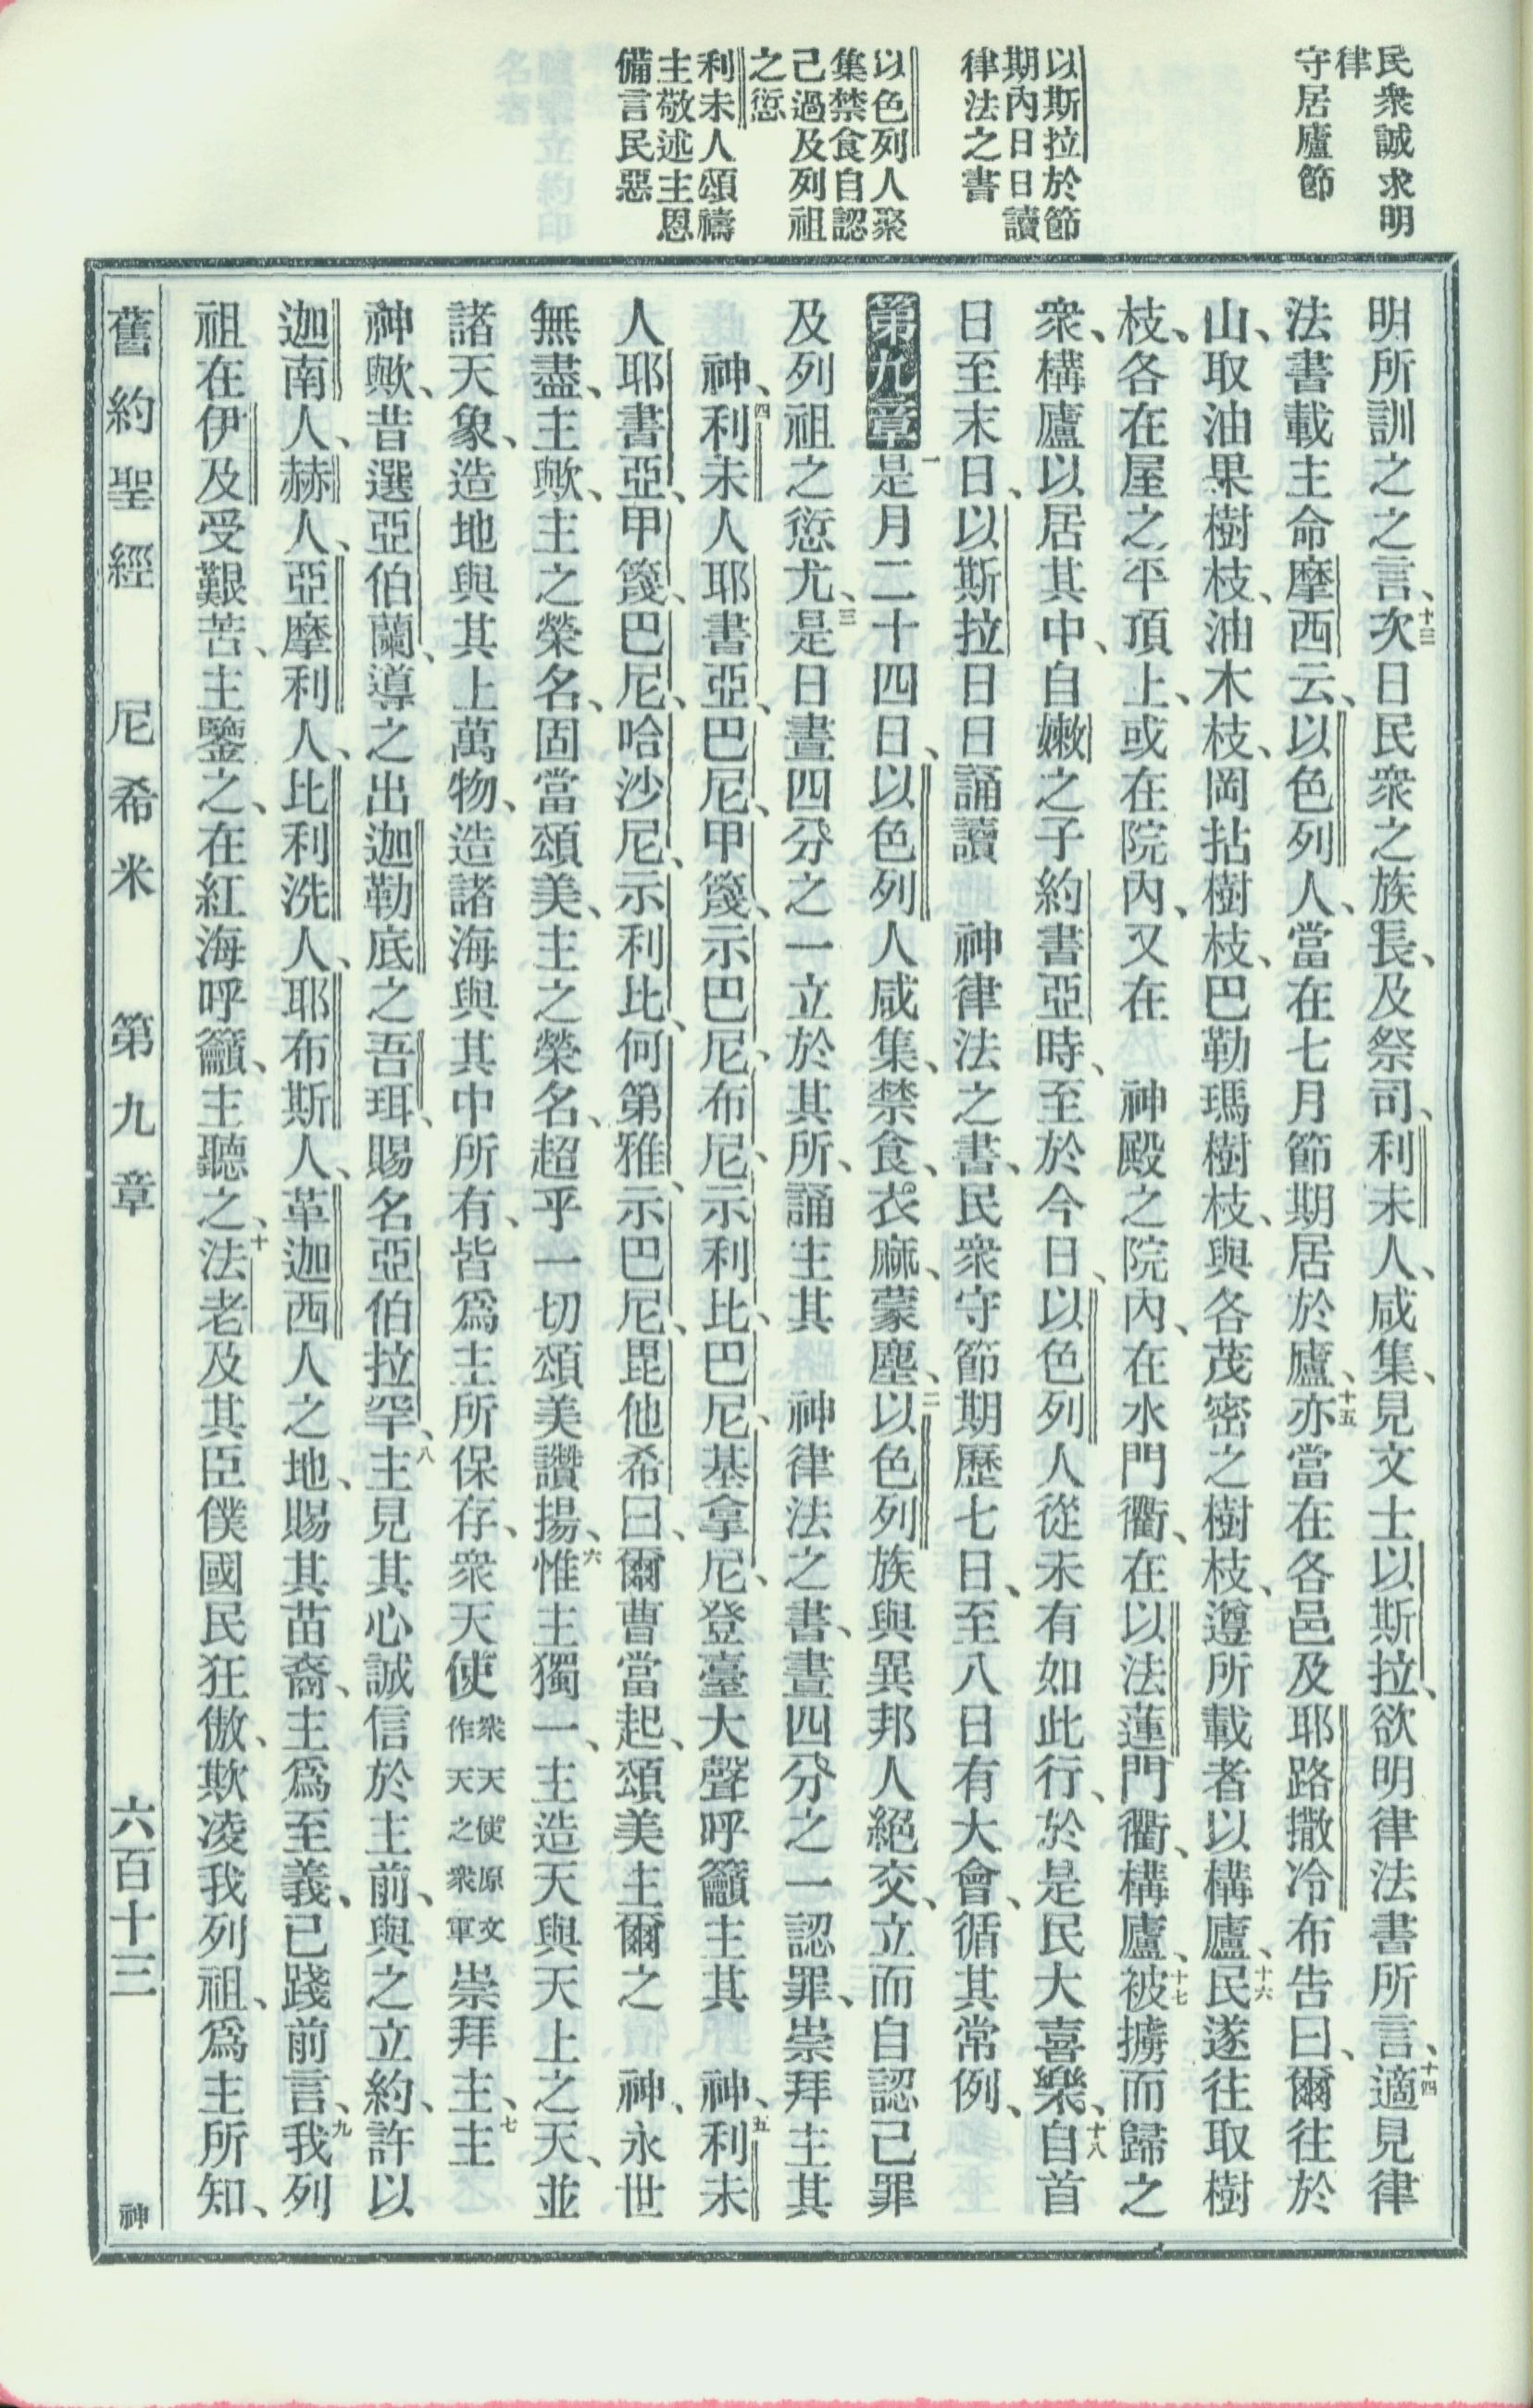 民衆誠求明
律
守居廬節
以斯拉於節
期內日日讀
律法之書
以色列人聚
集禁食自認
己過及列祖
之愆
利未人頌禱
主敬述主恩
備言民惡
明所訓之之言、十三次日民衆之族長、及祭司、利未人、咸集、見文士以斯拉、欲明律法書所言、十四適見律
法書載主命摩西云、以色列人、當在七月節期居於廬、十五亦當在各邑及耶路撒冷布告曰、爾往於
山、取油果樹枝、油木枝、岡拈樹枝、巴勒瑪樹枝、與各茂密之樹枝、遵所載者以構廬、十六民遂往取樹
枝、各在屋之平頂上、或在院內、又在 神殿之院內、在水門衢、在以法蓮門衢、構廬、十七被擄而歸之
衆、構廬以居其中、自嫩之子約書亞時、至於今日、以色列人從未有如此行、於是民大喜樂、十八自首
日至末日、以斯拉日日誦讀 神律法之書、民衆守節期歷七日、至八日有大會、循其常例、
第九章 一是月二十四日、以色列人咸集、禁食、衣麻、蒙塵、二以色列族與異邦人絕交、立而自認己罪
及列祖之愆尤、三是日晝四分之一立於其所、誦主其 神律法之書、晝四分之一認罪、崇拜主其
神、四利未人耶書亞、巴尼、甲篾、示巴尼、布尼、示利比、巴尼、基拿尼、登臺大聲呼籲主其 神、五利未
人耶書亞、甲篾、巴尼、哈沙尼、示利比、何第雅、示巴尼、毘他希曰、爾曹當起、頌美主爾之 神、永世
無盡、主歟、主之榮名、固當頌美、主之榮名、超乎一切頌美讚揚、六惟主獨一、主造天與天上之天、並
諸天象、造地與其上萬物、造諸海與其中所有、皆爲主所保存、衆天使衆天使原文作天之衆軍崇拜主、七主
神歟、昔選亞伯蘭、導之出迦勒底之吾珥、賜名亞伯拉罕、八主見其心誠信於主前、與之立約、許以
迦南人、赫人、亞摩利人、比利洗人、耶布斯人、革迦西人之地、賜其苗裔、主爲至義、已踐前言、九我列
祖在伊及受艱苦、主鑒之、在紅海呼籲、主聽之、十法老及其臣僕國民狂傲、欺凌我列祖、爲主所知、
舊約聖經 尼希米 第九章 六百十三 神